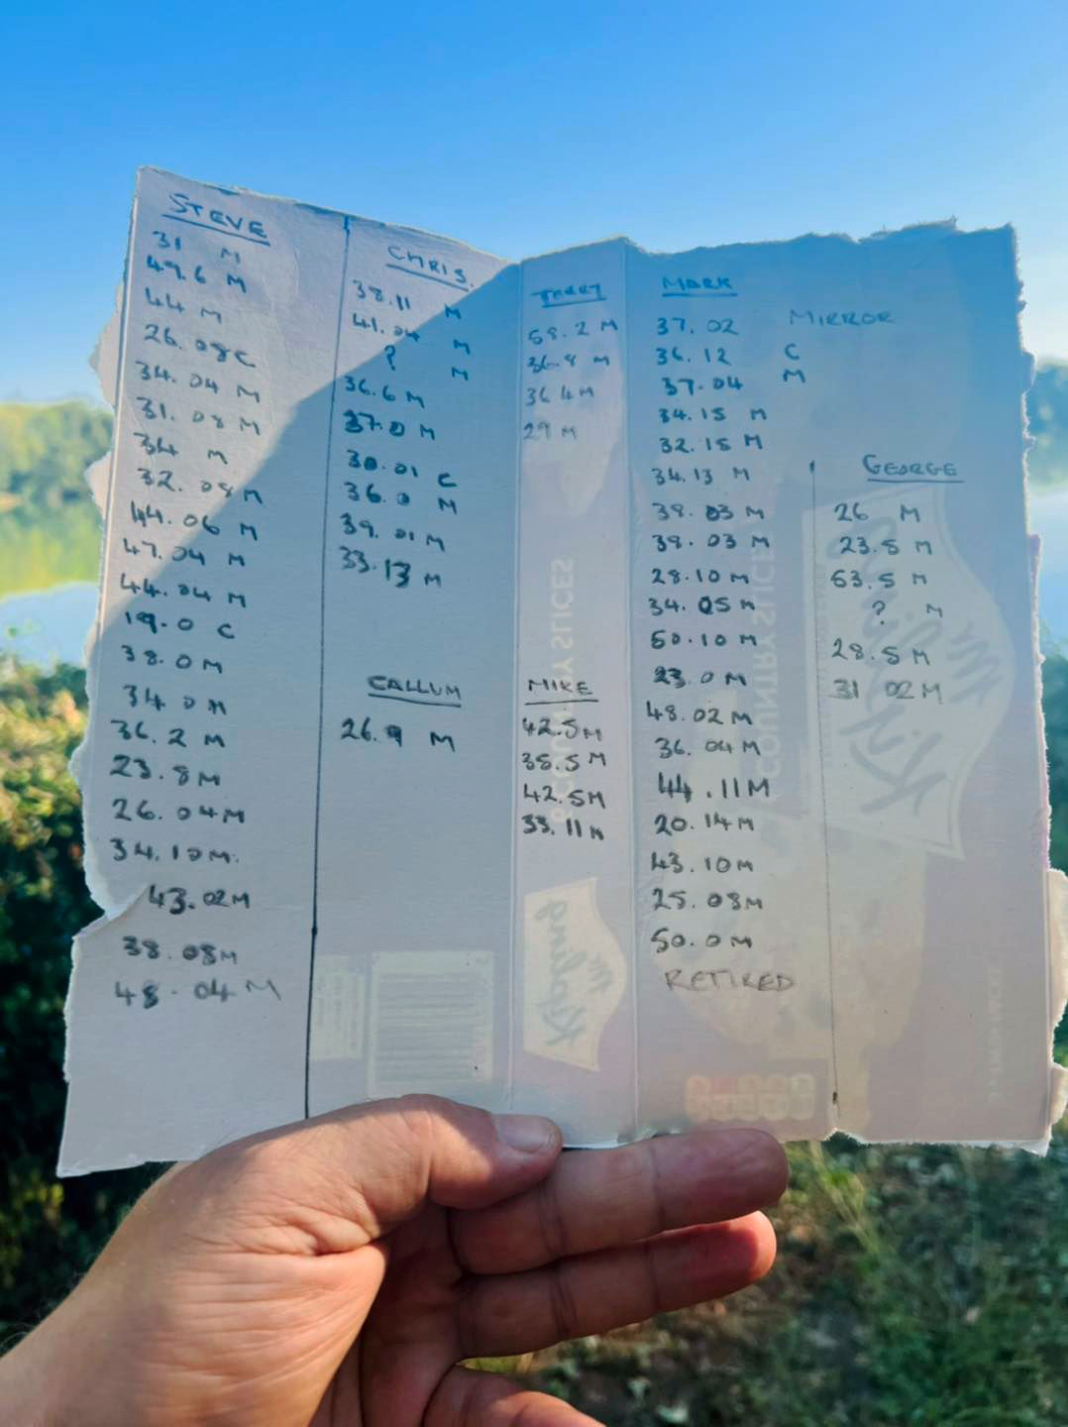 STEVE
31 M
49.6 M
44 M
26.08 C
34.04 M
31.08 M
34 M
32.08 M
44.06 M
47.04 M
44.04 M
19.0 C
38.0 M
34 0 M
36.2 M
23.8 M
26.04 M
34.10 M.
43.02 M
38.08 M
48.04 M
CHRIS
38.11 M
41.04 M
? M
36.6 M
37.0 M
30.01 C
36.0 M
39.01 M
33.13 M
CALLUM
26.9 M
TERRY
58.2 M
36.8 M
36 4 M
29 M
MIKE
42.5 M
35.5 M
42.5 M
33.11 M
MARK
37.02 MIRROR
36.12 C
37.04 M
34.15 M
32.15 M
34.13 M
38.03 M
38.03 M
28.10 M
34.05 M
50.10 M
23.0 M
48.02 M
36.04 M
44.11 M
20.14 M
43.10 M
25.08 M
50.0 M
RETIRED
GEORGE
26 M
23.5 M
53.5 M
? M
28.5 M
31 02 M
COUNTRY SLICES
COUNTRY SLICES
Mr Kipling
Mr Kipling